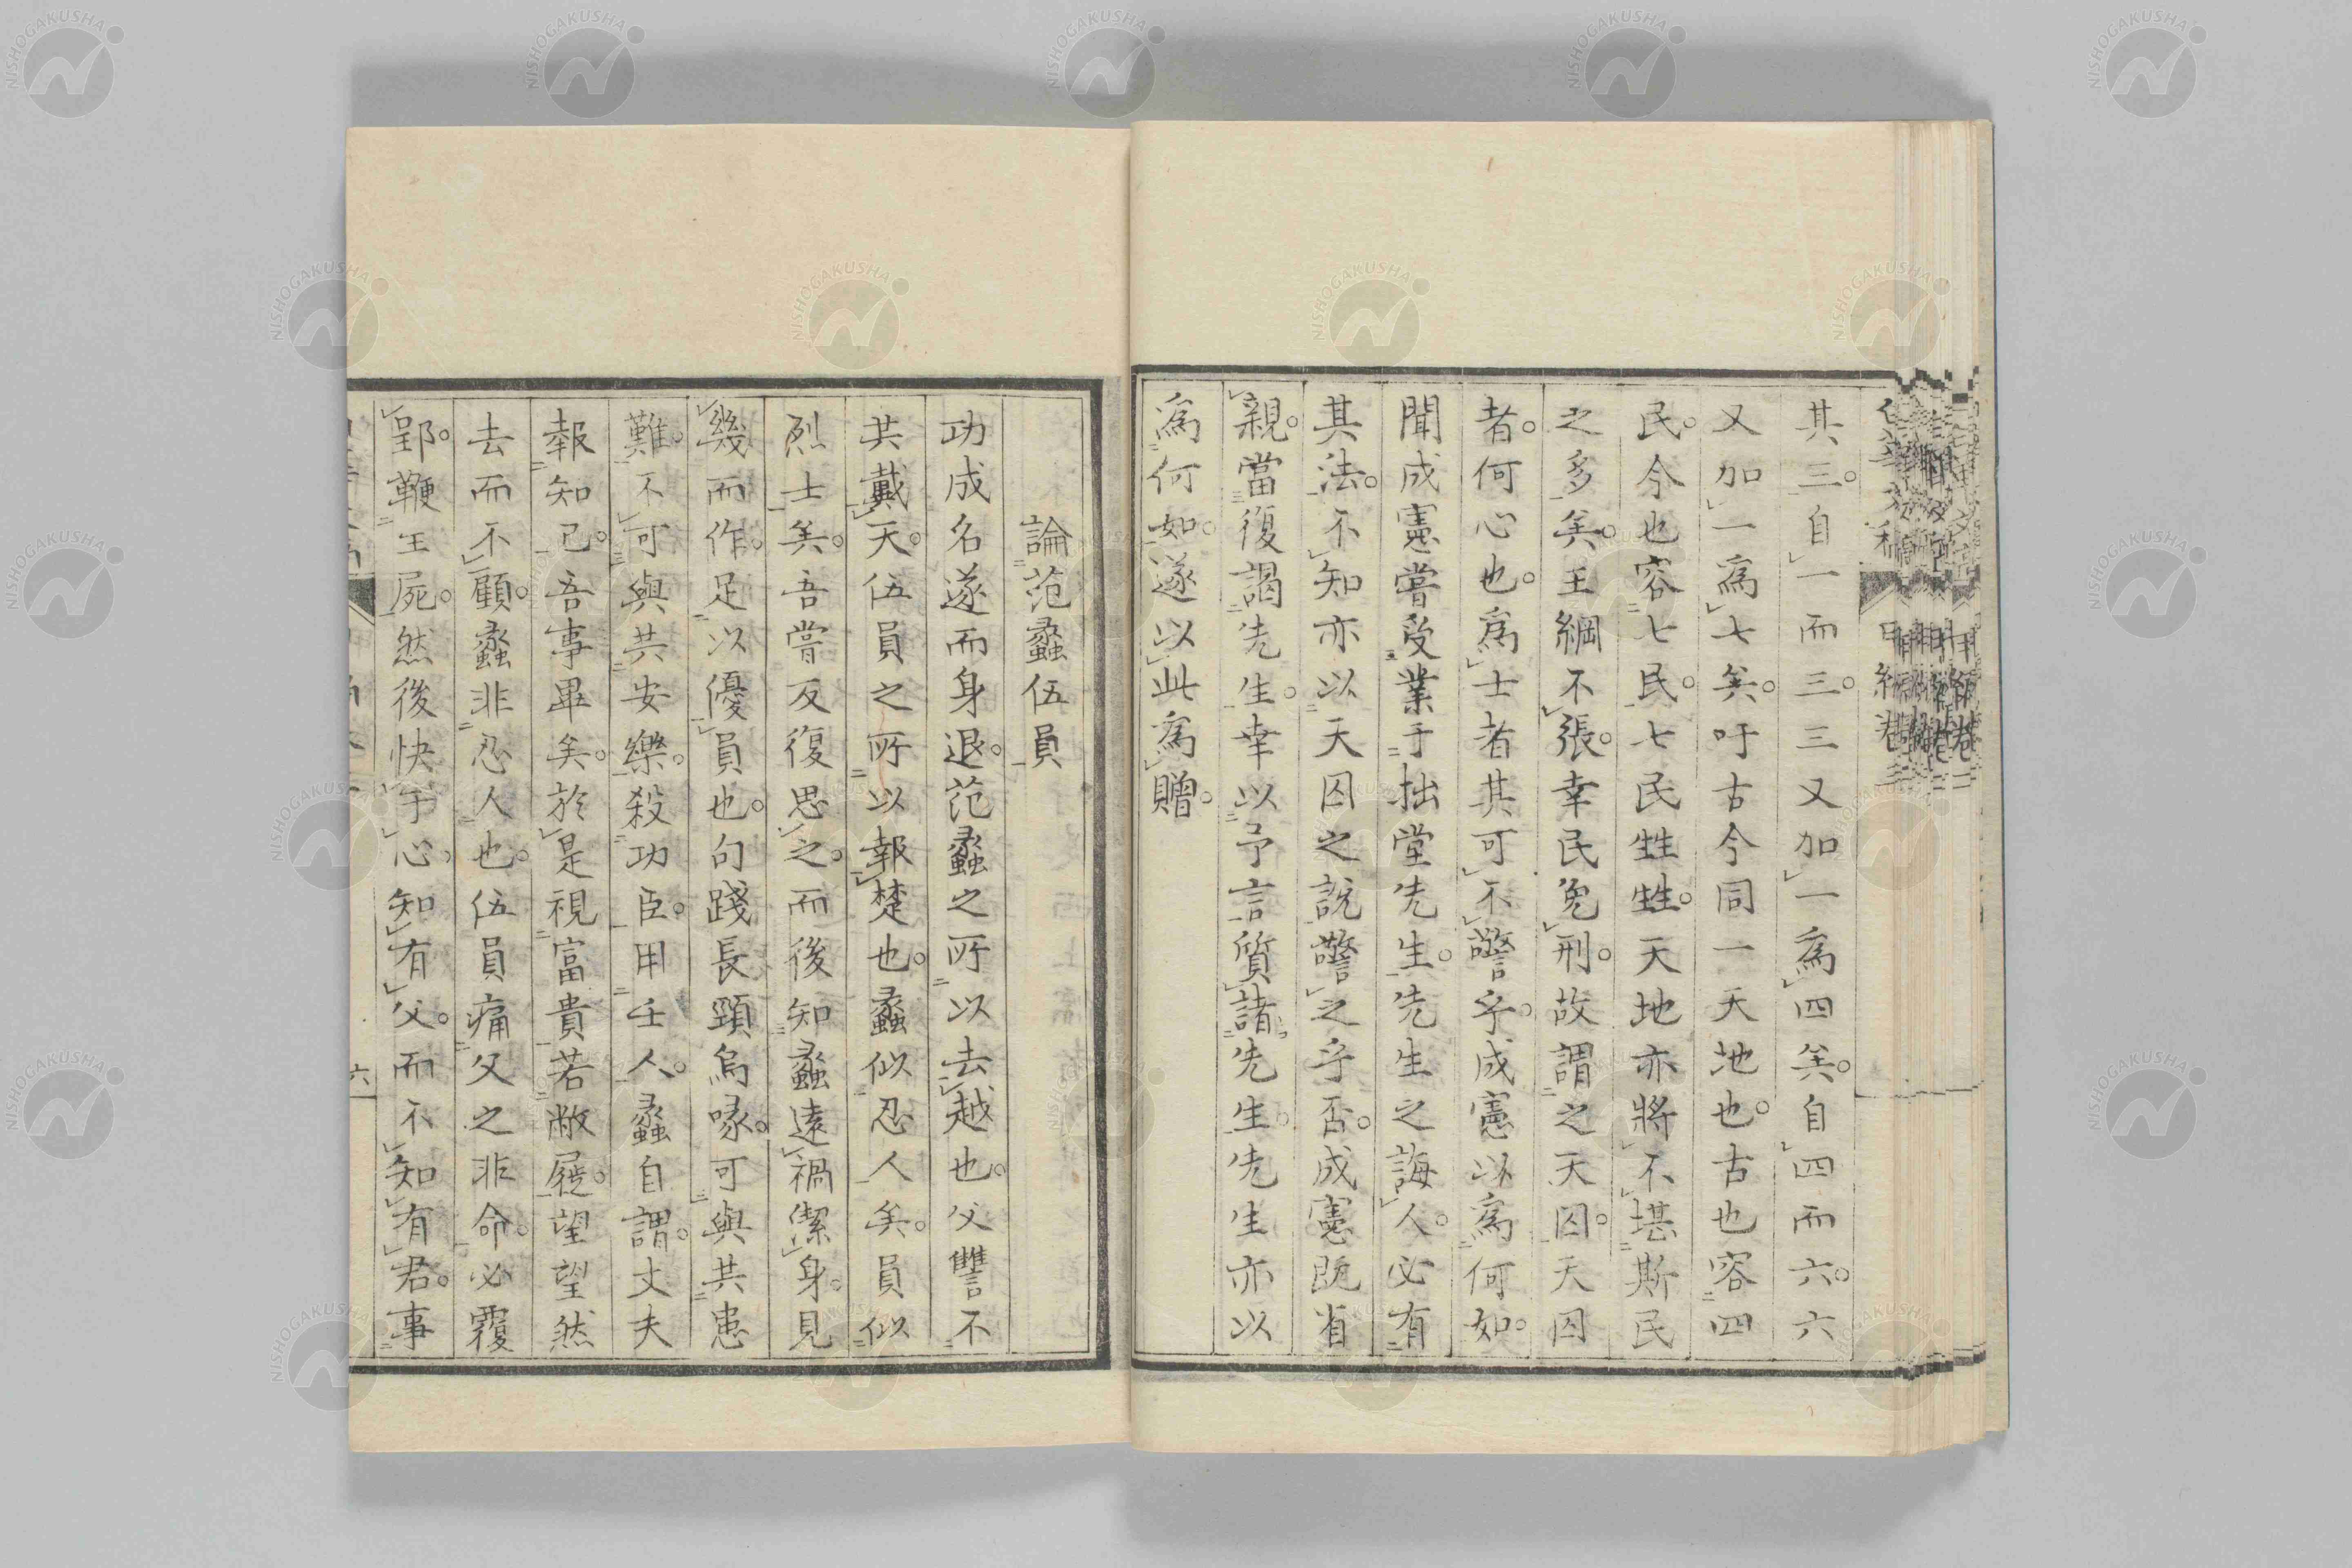 其三。自一而三。三又加一為四矣。自四而六。六
又加一為七矣。吁古今同一天地也。古也容四
民。今也容七民。七民甡甡。天地亦將不堪斯民
之多矣。王綱不張。幸民免刑。故謂之天囚。天囚
者。何心也。為士者其可不警乎。成憲以為何如。
聞成憲嘗受業于拙堂先生。先生之誨人。必有
其法。不知亦以天囚之說警之乎否。成憲既省
親。當復謁先生。幸以予言質諸先生。先生亦以
為何如。遂以此為贈。
論范蠡伍員
功成名遂而身退。范蠡之所以去越也。父讐不
共戴天。伍員之所以報楚也。蠡似忍人矣。員似
烈士矣。吾嘗反復思之。而後知蠡遠禍潔身。見
幾而作。足以優員也。句踐長頸烏喙。可與共患
難。不可與共安樂。殺功臣。用壬人。蠡自謂。丈夫
報知己。吾事畢矣。於是視富貴若敝屣。望望然
去而不顧。蠡非忍人也。伍員痛父之非命。必覆
郢。鞭王屍。然後快乎心。知有父。而不知有君。事
六
NISHOGAKUSHA